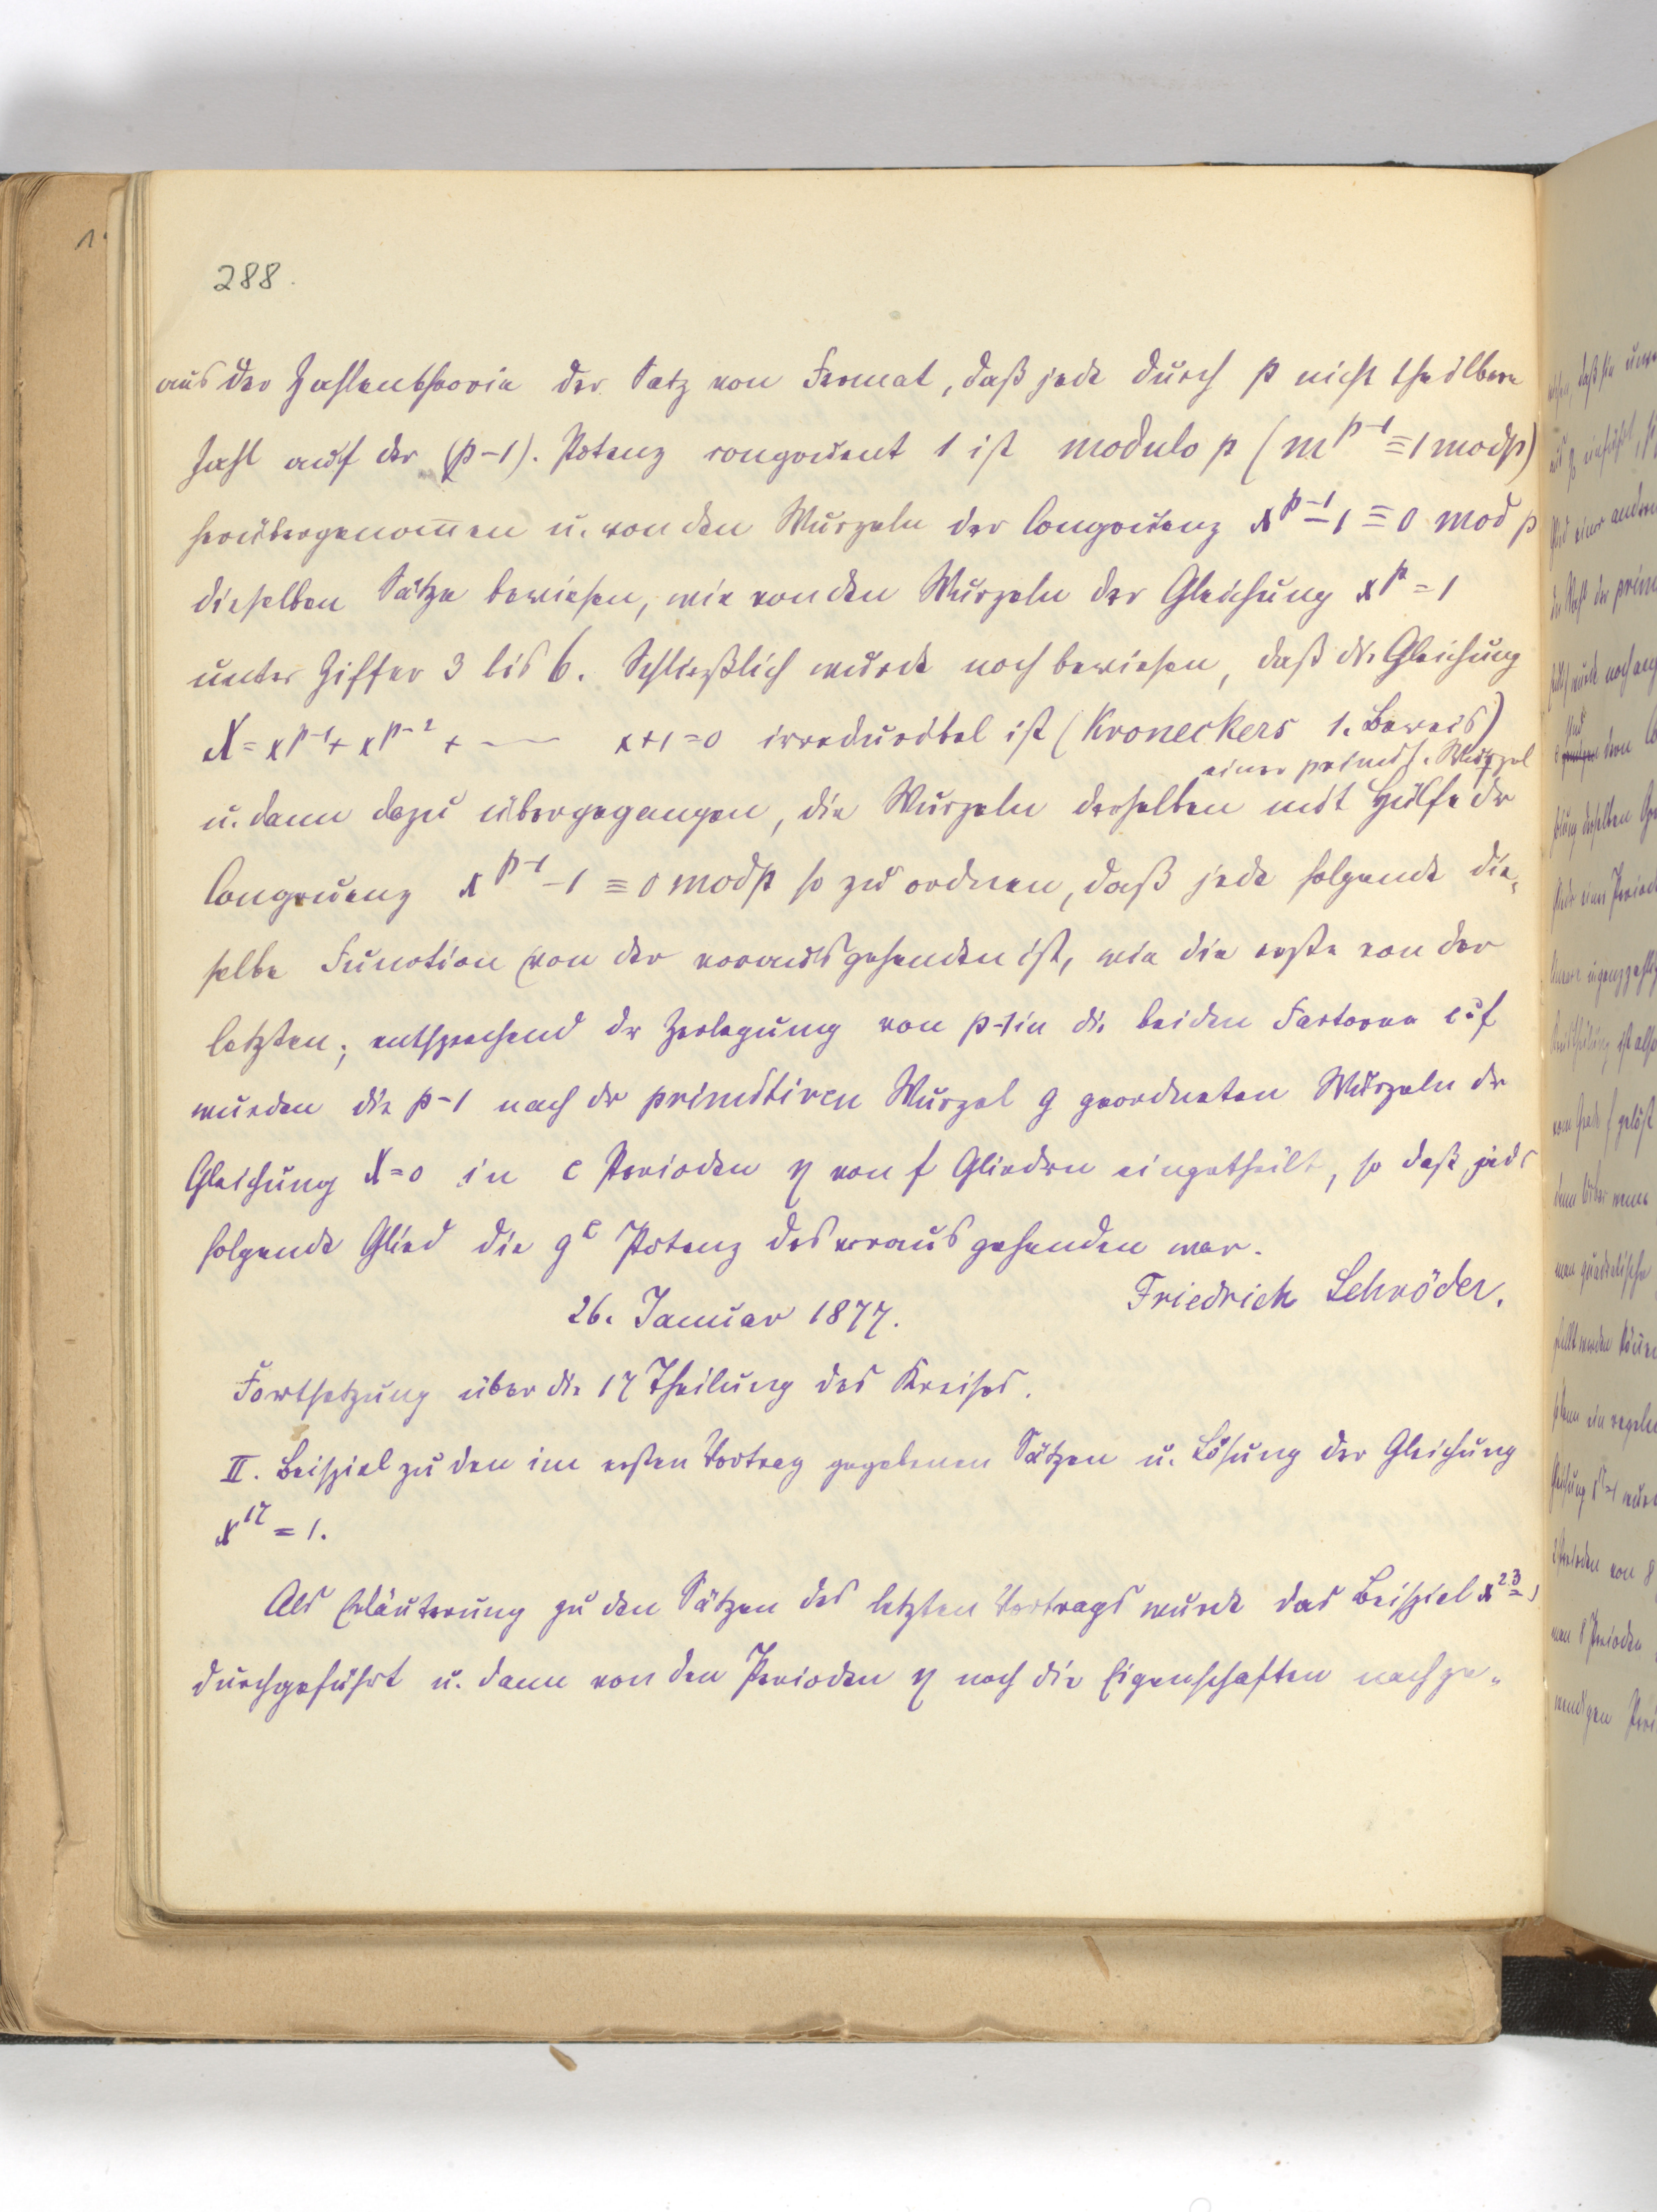 288.
aus der Zahlentheorie der Satz von Fermat, daß jede durch p nicht theilbare
Zahl auf der (p-1). Potenz congruent 1 ist modulo p (m^{p-1} ≡ 1 mod p)
herübergenom̄en u. von den Wurzeln der Congruenz x^{p-1} - 1 ≡ 0 mod p
dieselben Sätze bewiesen, wie von den Wurzeln der Gleichung x^p = 1
unter Ziffer 3 bis 6. Schließlich wurde noch bewiesen, daß die Gleichung
X = x^{p-1} + x^{p-2} + ---- x+1=0 irreducibel ist (Kroneckers 1. Beweis)
einer primit. Wurzel
u. dann dazu übergegangen, die Wurzeln derselben mit Hülfe der
Congruenz x^{p-1} - 1 ≡ 0 mod p so zu ordnen, daß jede folgende die-
selbe Function von der vorausgehenden ist, wie die erste von der
letzten; entsprechend der Zerlegung von p-1 in die beiden Factoren e u f
wurden die p-1 nach der primitiven Wurzel g geordneten Wurzeln der
Gleichung X=0 in e Perioden η von f Gliedern eingetheilt, so daß jede
folgende Glied die g^e Potenz des vorausgehenden war.
Friedrich Schröder.
26. Januar 1877.
Fortsetzung über die 17 Theilung des Kreises.
II. Beispiel zu den im ersten Vortrag gegebenen Sätzen u. Lösung der Gleichung
x^{17} = 1.
Als Erläuterung zu den Sätzen des letzten Vortrags wurde das Beispiel x^{23} = 1
durchgeführt u. dann von den Perioden η noch die Eigenschaften nachge-